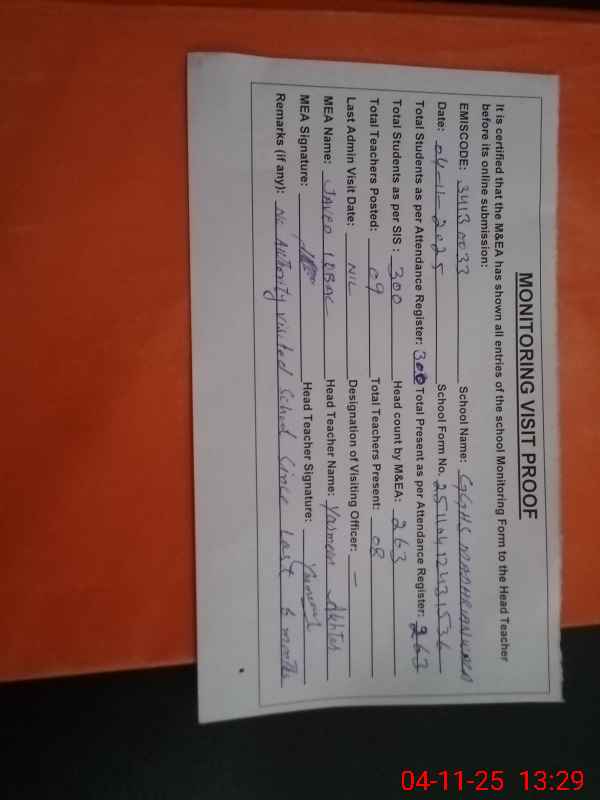 MONITORING VISIT PROOF
It is certified that the M&EA has shown all entries of the school Monitoring Form to the Head Teacher
before its online submission:
EMISCODE: 34130033 School Name: GGHS
Date: 04-11-2025 School Form No. 25110412431536
Total Students as per Attendance Register: 300 Total Present as per Attendance Register: 263
Total Students as per SIS : 300 Head count by M&EA: 263
Total Teachers Posted: 09 Total Teachers Present: 08
Last Admin Visit Date: NIL Designation of Visiting Officer: —
MEA Name: JAVED IQBAL Head Teacher Name: Yasmeen Akhtar
MEA Signature: Head Teacher Signature: Yasmeen
Remarks (if any): No Authority visited School Since Last 6 months
04-11-25 13:29